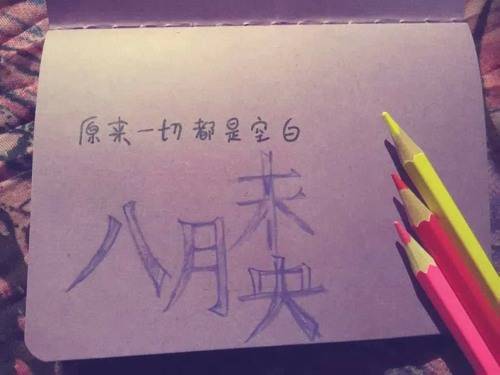 原来一切都是空白
八月未央